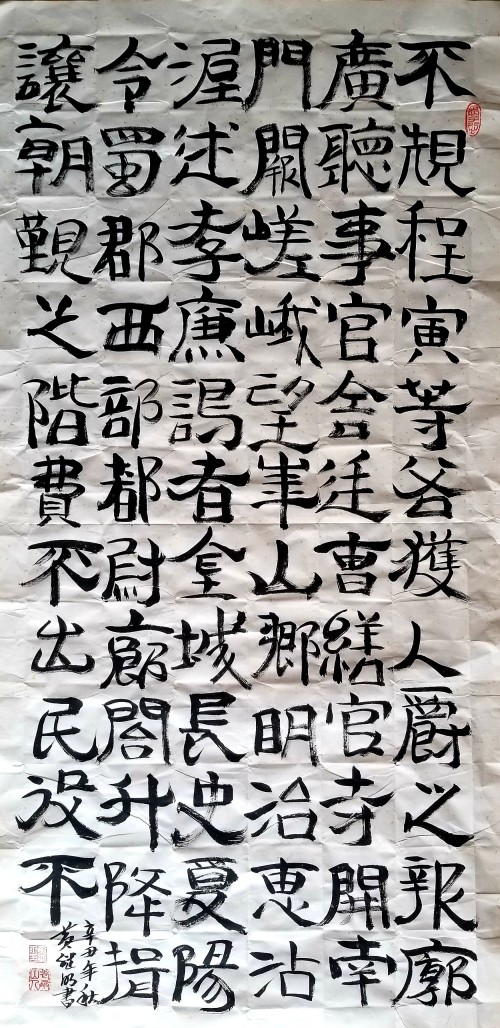 不規程寅等各獲人爵之報廓
廣聽事官舍廷曹繕官寺開南
門闕嵯峨望華山鄉明治惠沾
渥述孝廉謁者金城長史夏陽
令蜀郡西部都尉廊閣升降揖
讓朝覲之階費不出民役不
辛丑年秋
黃繼明書